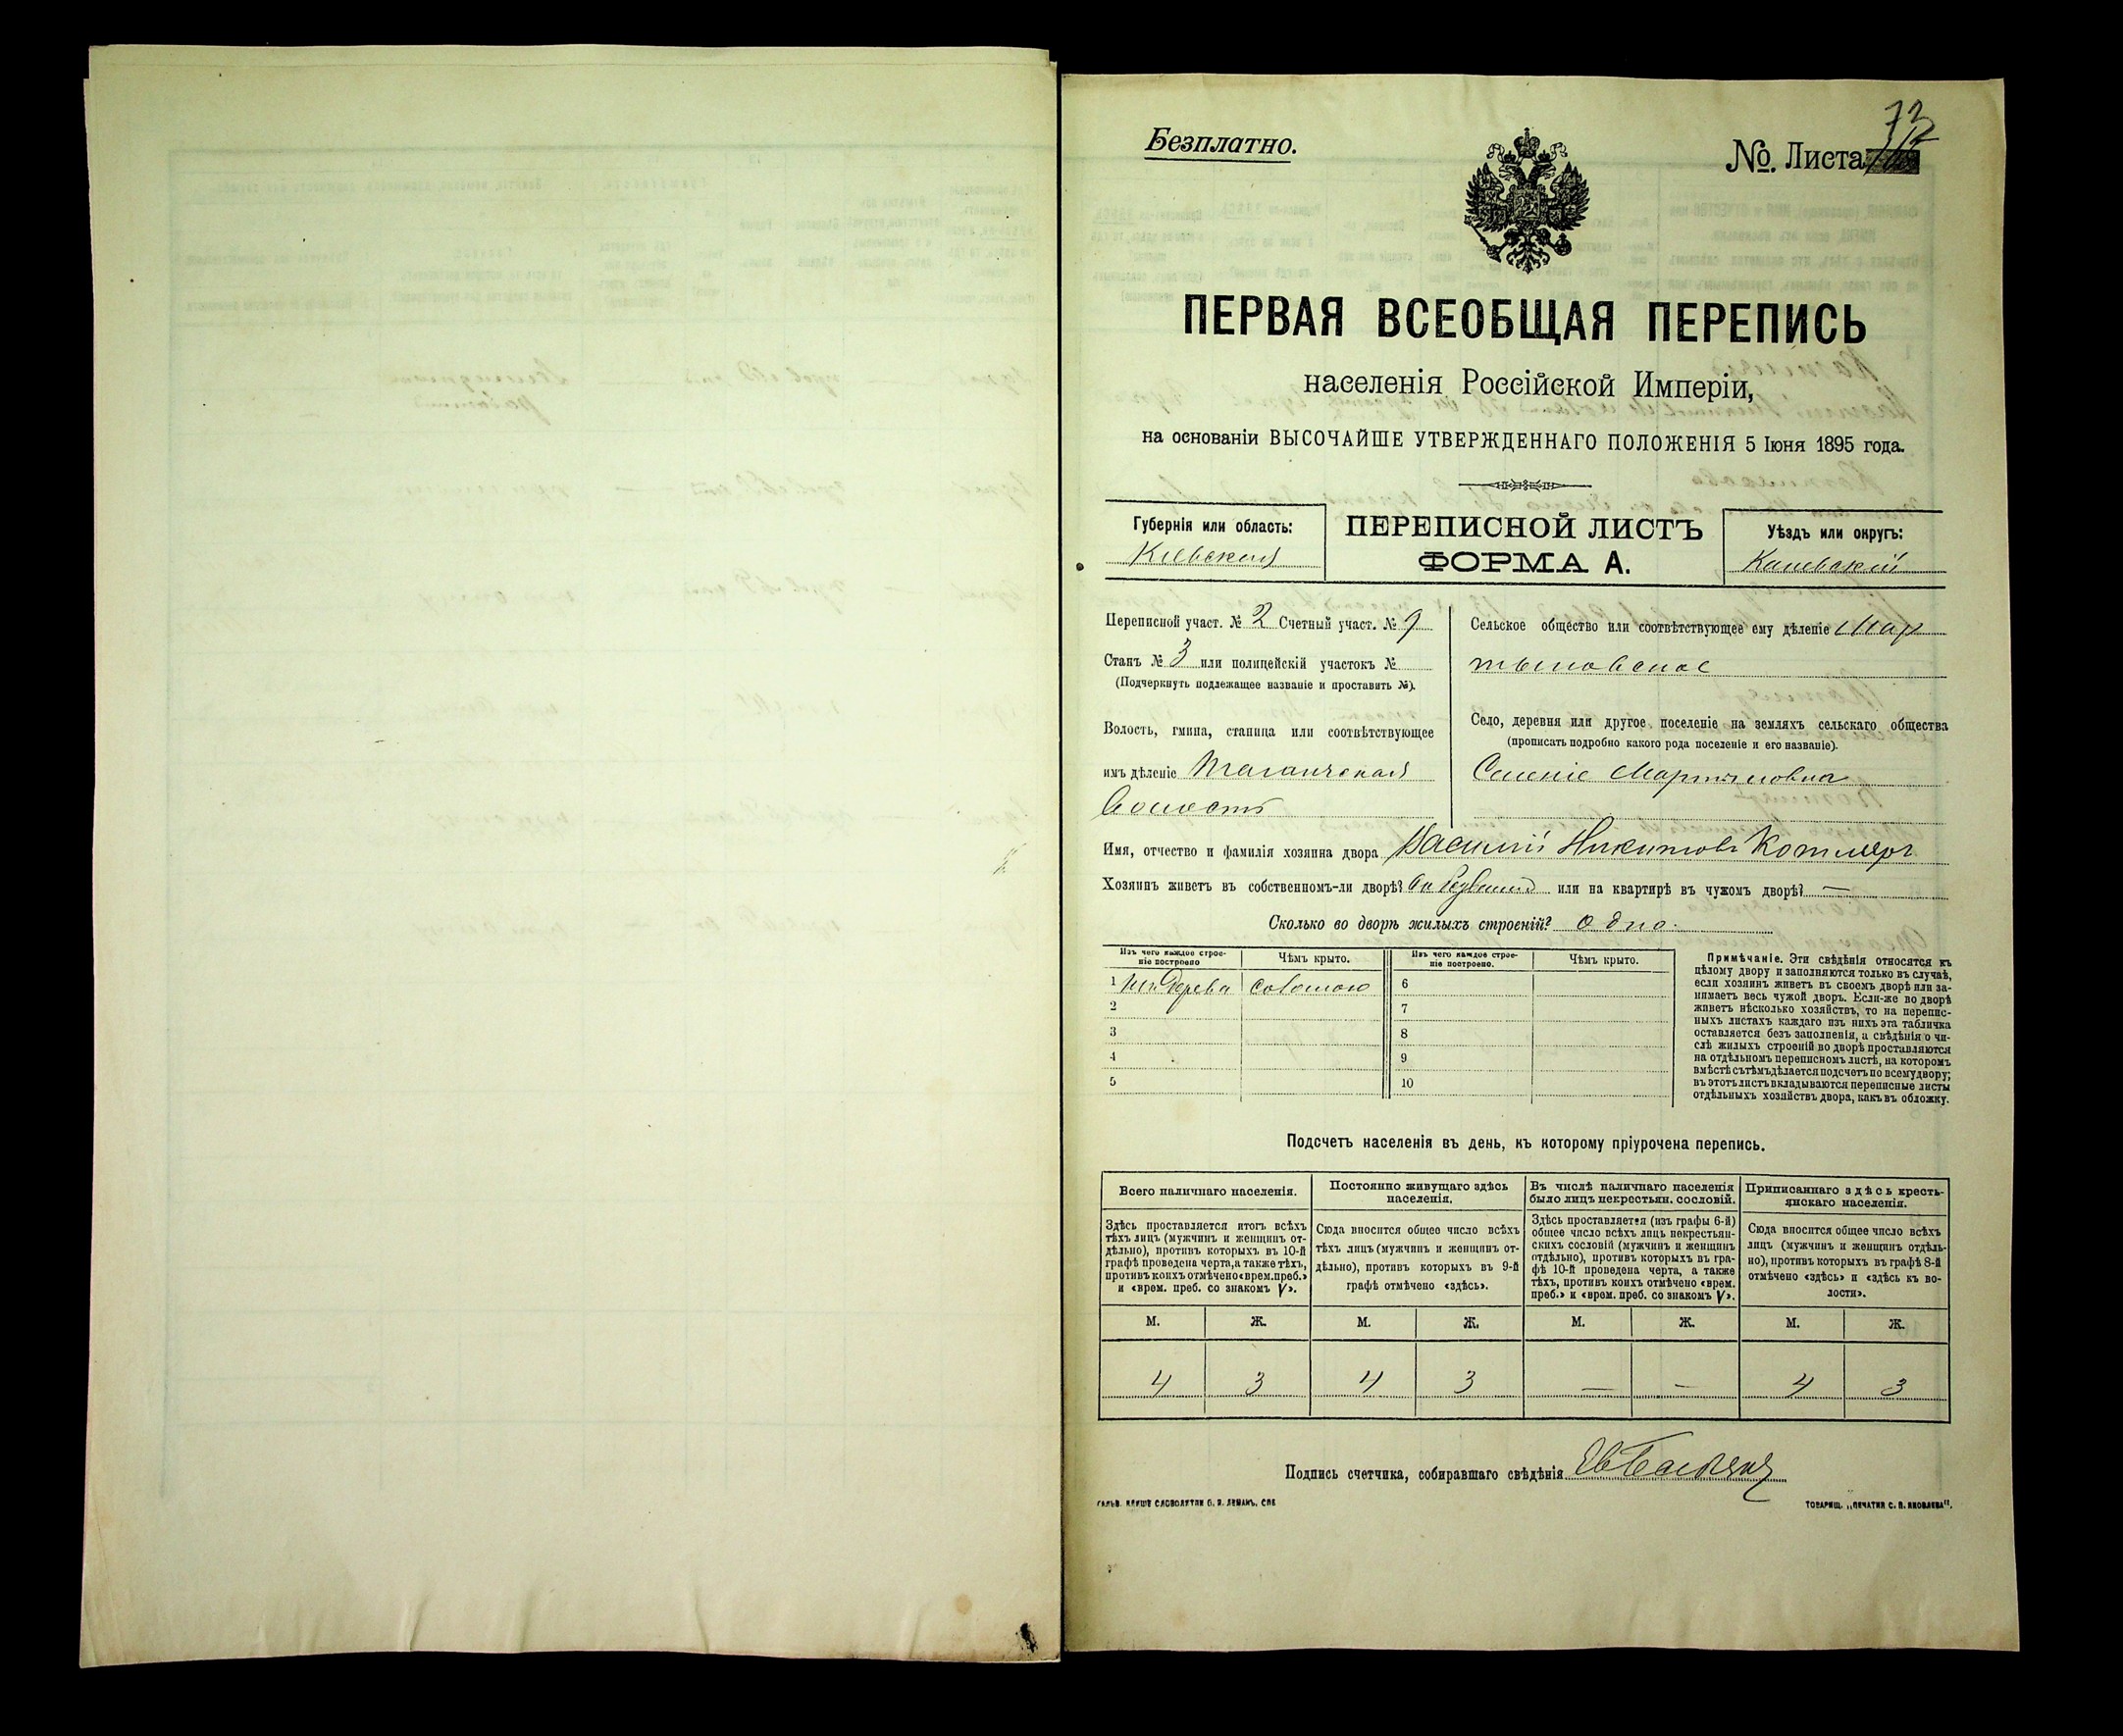 Безплатно.
№. Листа
ПЕРВАЯ ВСЕОБЩАЯ ПЕРЕПИСЬ
населенія Россійской Имперіи,
на основаніи ВЫСОЧАЙШЕ УТВЕРЖДЕННАГО ПОЛОЖЕНІЯ 5 Іюня 1895 года.
Губернія или область:
Кіевская
ПЕРЕПИСНОЙ ЛИСТЪ
ФОРМА А.
Уѣздъ или округъ:
Каневскій
Переписной участ. № 2 Счетный участ. № 9
Станъ № 3 или полицейскій участокъ №
(Подчеркнуть подлежащее названіе и проставить №).
Волость, гмина, станица или соотвѣтствующее
имъ дѣленіе Таганчская
Волость
Сельское общество или соотвѣтствующее ему дѣленіе Мар
тыновское
Село, деревня или другое поселеніе на земляхъ сельскаго общества
(прописать подробно какого рода поселеніе и его названіе).
Селеніе Мартыновка
Имя, отчество и фамилія хозяина двора Василій Никитовъ Котляръ
Хозяинъ живетъ въ собственномъ-ли дворѣ? или на квартирѣ въ чужомъ дворѣ? —
Сколько во дворѣ жилыхъ строеній? одно.
Изъ чего каждое строе-
ніе построено
Чѣмъ крыто.
Изъ чего каждое строе-
ніе построено.
Чѣмъ крыто.
1 изъ дерева соломою 6
2 7
3 8
4 9
5 10
Примѣчаніе. Эти свѣдѣнія относятся къ
цѣлому двору и заполняются только въ случаѣ,
если хозяинъ живетъ въ своемъ дворѣ или за-
нимаетъ весь чужой дворъ. Если-же во дворѣ
живетъ нѣсколько хозяйствъ, то на перепис-
ныхъ листахъ каждаго изъ нихъ эта табличка
оставляется безъ заполненія, а свѣдѣнія о чи-
слѣ жилыхъ строеній во дворѣ проставляются
на отдѣльномъ переписномъ листѣ, на которомъ
вмѣстѣ съ тѣмъ дѣлается подсчетъ по всему двору;
въ этотъ листъ вкладываются переписные листы
отдѣльныхъ хозяйствъ двора, какъ въ обложку.
Подсчетъ населенія въ день, къ которому пріурочена перепись.
Всего наличнаго населенія.
Здѣсь проставляется итогъ всѣхъ
тѣхъ лицъ (мужчинъ и женщинъ от-
дѣльно), противъ которыхъ въ 10-й
графѣ проведена черта, а также тѣхъ,
противъ коихъ отмѣчено «врем. преб.»
и «врем. преб. со знакомъ V».
Постоянно живущаго здѣсь
населенія.
Сюда вносится общее число всѣхъ
тѣхъ лицъ (мужчинъ и женщинъ от-
дѣльно), противъ которыхъ въ 9-й
графѣ отмѣчено «здѣсь».
Въ числѣ наличнаго населенія
было лицъ некрестьян. сословій.
Здѣсь проставляется (изъ графы 6-й)
общее число всѣхъ лицъ некрестьян-
скихъ сословій (мужчинъ и женщинъ
отдѣльно), противъ которыхъ въ гра-
фѣ 10-й проведена черта, а также
тѣхъ, противъ коихъ отмѣчено «врем.
преб.» и «врем. преб. со знакомъ V».
Приписаннаго здѣсь кресть-
янскаго населенія.
Сюда вносится общее число всѣхъ
лицъ (мужчинъ и женщинъ отдѣль-
но), противъ которыхъ въ графѣ 8-й
отмѣчено «здѣсь» и «здѣсь къ во-
лости».
М. Ж. М. Ж. М. Ж. М. Ж.
4 3 4 3 — — 4 3
Подпись счетчика, собиравшаго свѣдѣнія
ГАЛЬВ. КЛИШЕ СЛОВОЛИТНИ О. И. ЛЕМАНЪ, СПБ
ТОВАРИЩ. „ПЕЧАТНЯ С. П. ЯКОВЛЕВА".